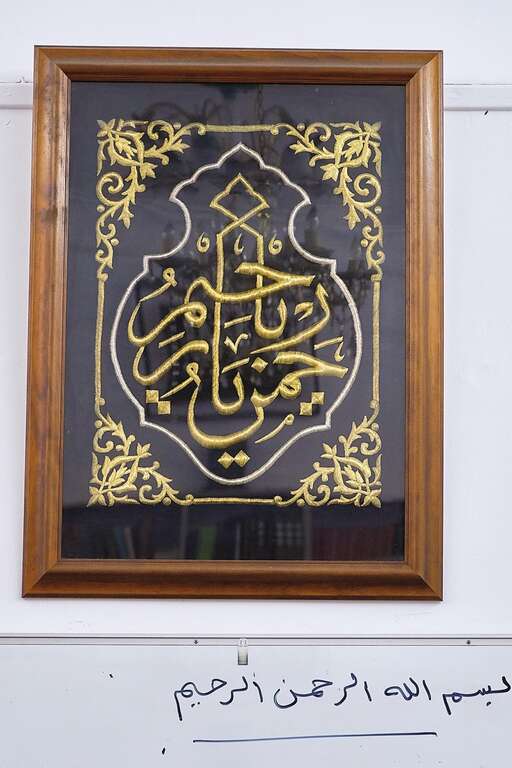 يا رحمن يا رحيم
بسم الله الرحمن الرحيم